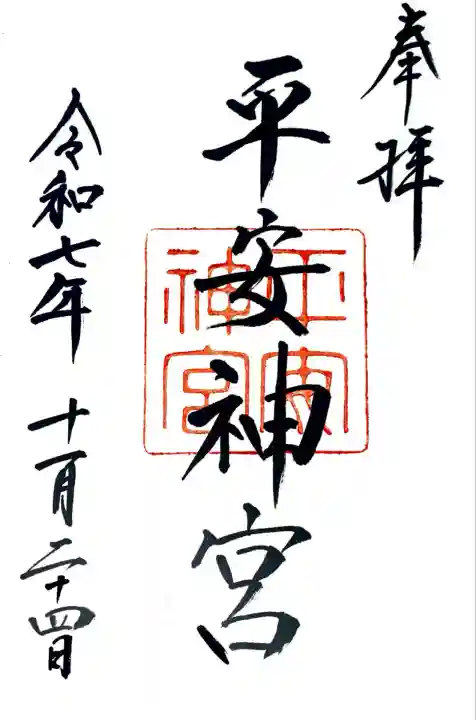 奉拝
平安神宮
平安神宮
令和七年 十一月二十四日